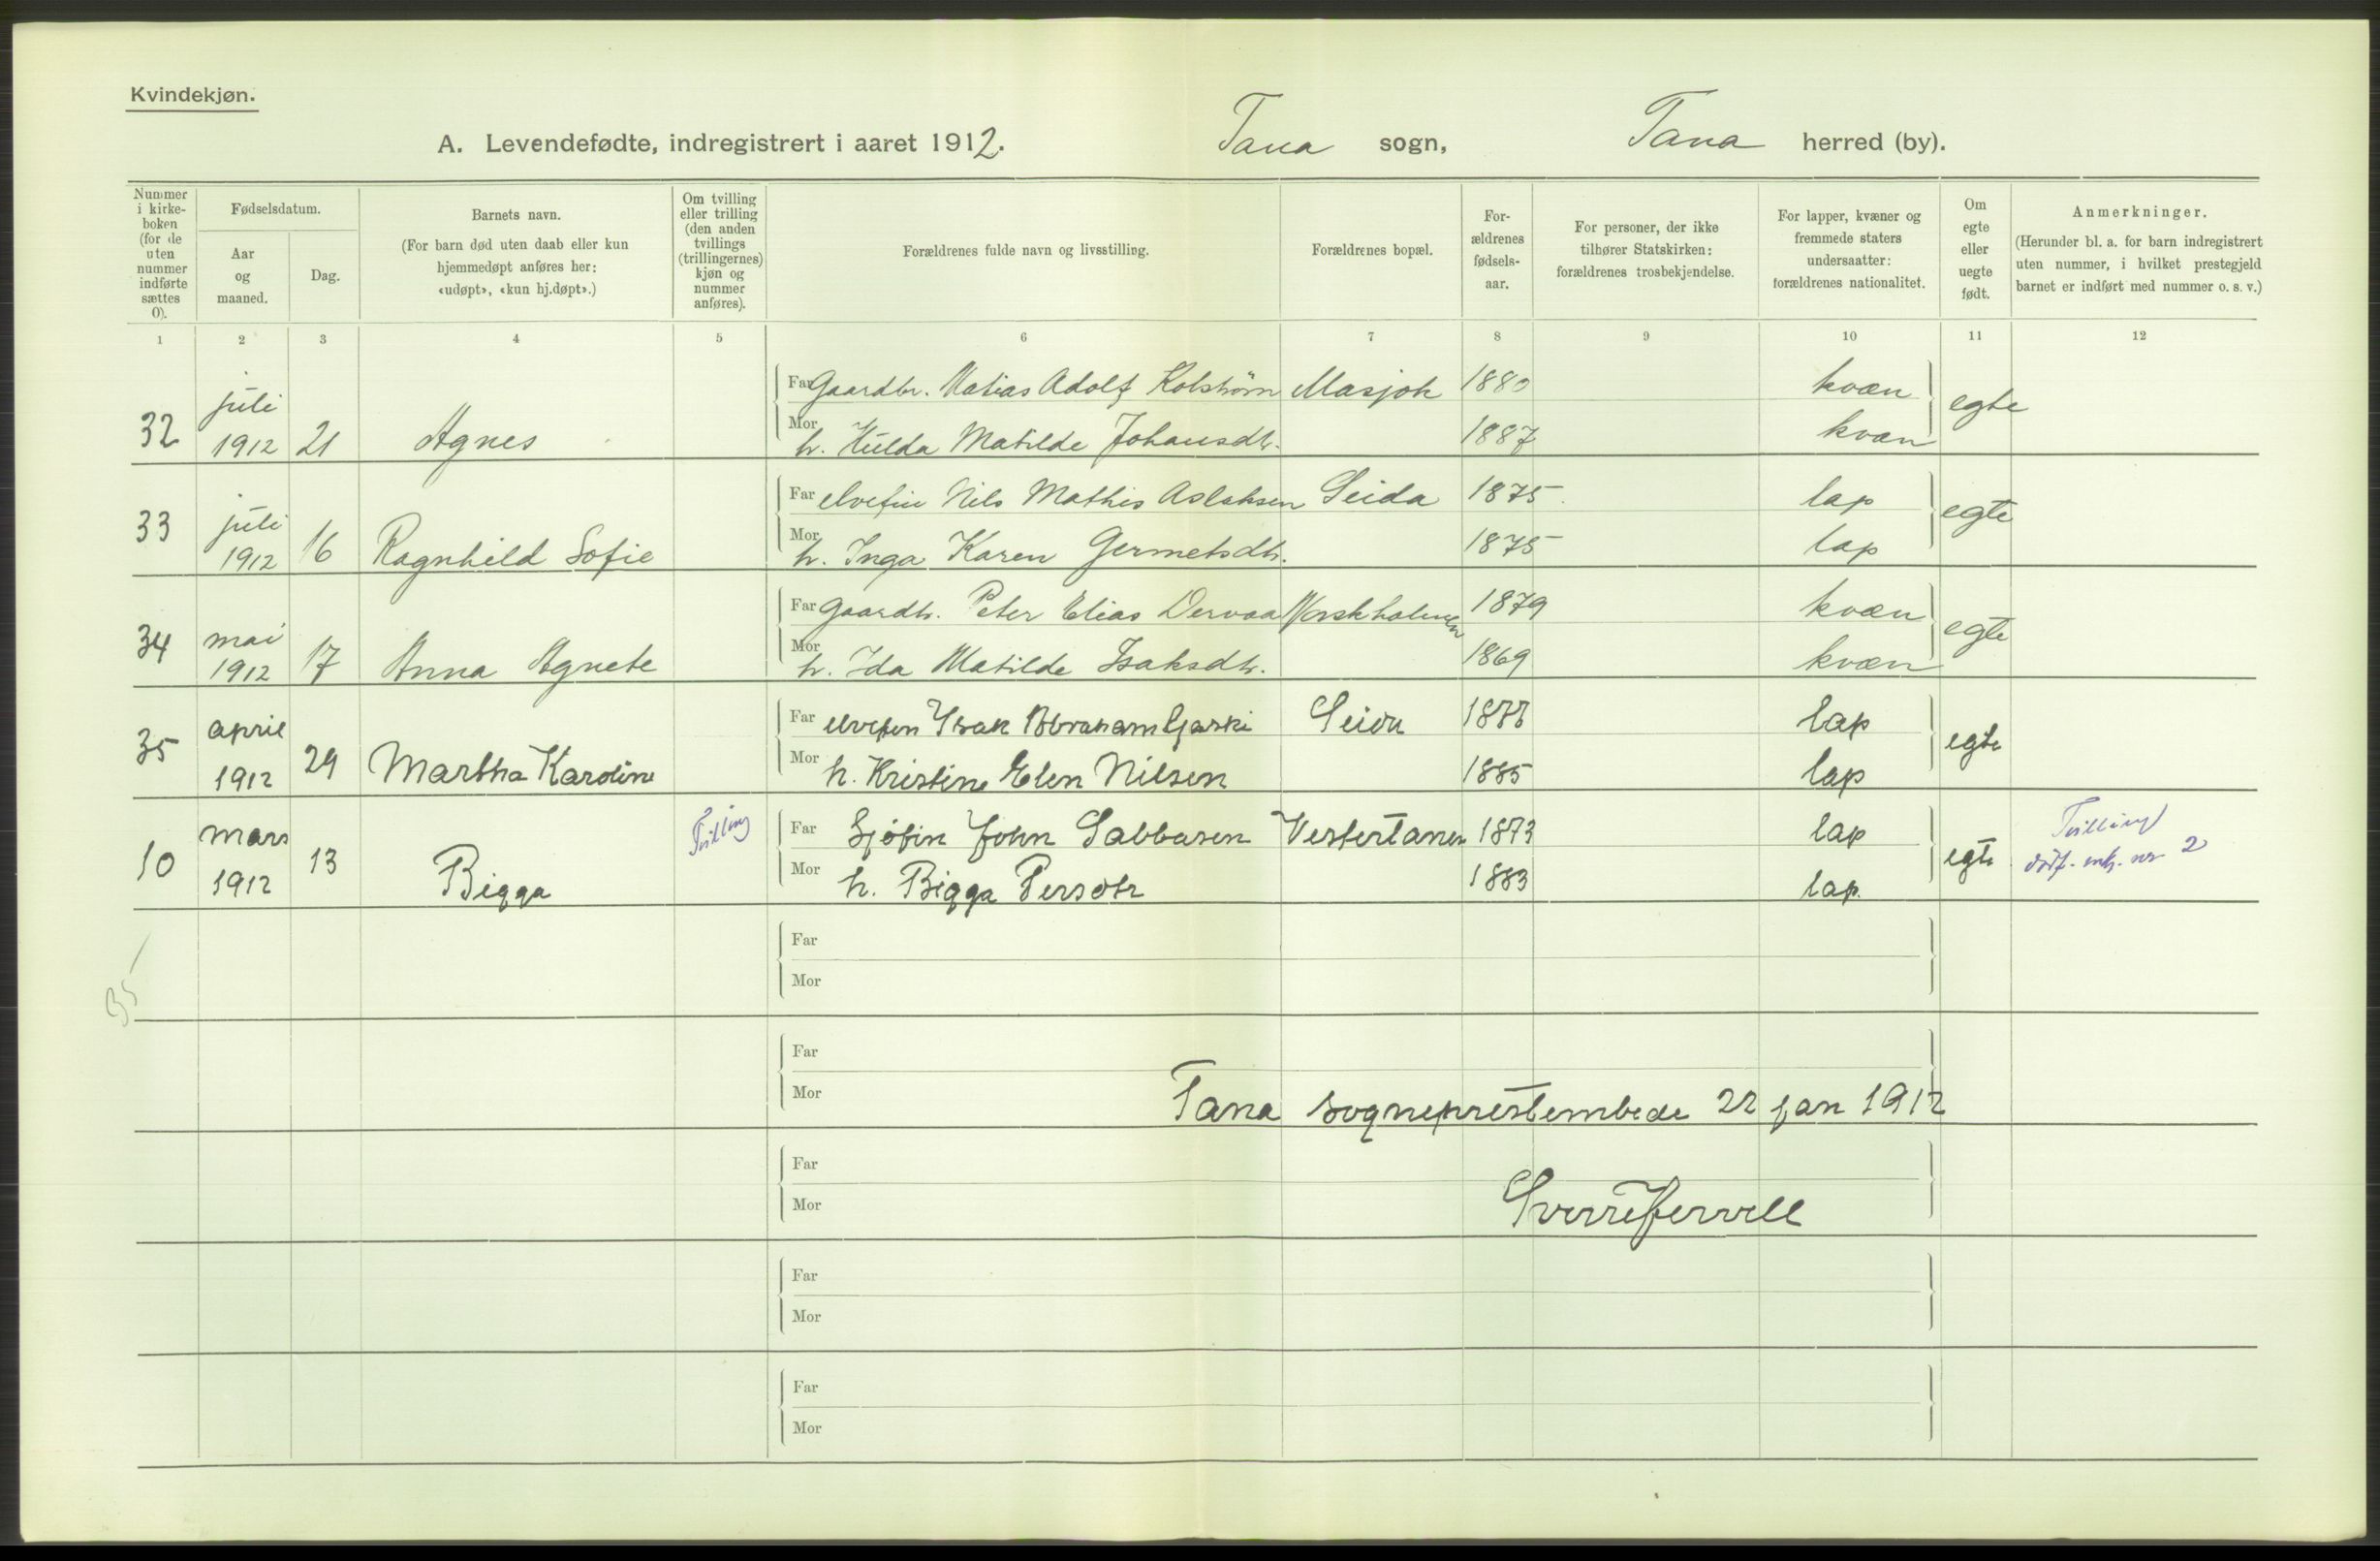 Kvindekjøn.
A. Levendefødte, indregistrert i aaret 1912. Tana sogn, Tana herred (by).
Nummer i kirke-boken (for de uten nummer indførte sættes 0).
Fødselsdatum.
Aar og maaned.
Dag.
Barnets navn.
(For barn død uten daab eller kun hjemmedøpt anføres her: «udøpt», «kun hj.døpt».)
Om tvilling eller trilling (den anden tvillings (trillingernes) kjøn og nummer anføres).
Forældrenes fulde navn og livsstilling.
Forældrenes bopæl.
For-ældrenes fødsels-aar.
For personer, der ikke tilhører Statskirken: forældrenes trosbekjendelse.
For lapper, kvæner og fremmede staters undersaatter: forældrenes nationalitet.
Om egte eller uegte født.
Anmerkninger.
(Herunder bl. a. for barn indregistrert uten nummer, i hvilket prestegjeld barnet er indført med nummer o. s. v.)
1 2 3 4 5 6 7 8 9 10 11 12
Far Gaardbr. Matias Adolf Kolström Masjok 1880 kvæn
32 juli 1912 21 Agnes egte
Mor h. Hulda Matilde Johansdtr. 1887 kvæn
Far elvefin Nils Mathis Aslaksen Seida 1875 lap
33 juli 1912 16 Ragnhild Sofie egte
Mor h. Inga Karen Germetsdtr. 1875 lap
Far Gaardbr. Peter Elias Dervaa Norskholmen 1879 kvæn
34 mai 1912 17 Anna Agnete egte
Mor h. Ida Matilde Isaksdtr. 1869 kvæn
Far elvefin Isak Abraham Gjaski Seida 1877 lap
35 april 1912 29 Martha Karoline egte
Mor h. Kristine Elen Nilsen 1885 lap
Far Sjøfin John Sabbasen Vestertanen 1873 lap
10 mars 1912 13 Bigga Tvilling egte Tvilling
Mor h. Bigga Persdtr 1883 lap. 2
Far
Mor
35
Far
Mor
Tana sogneprestembede 22 jan 1912
Far
Mor
Far
Mor
Far
Mor